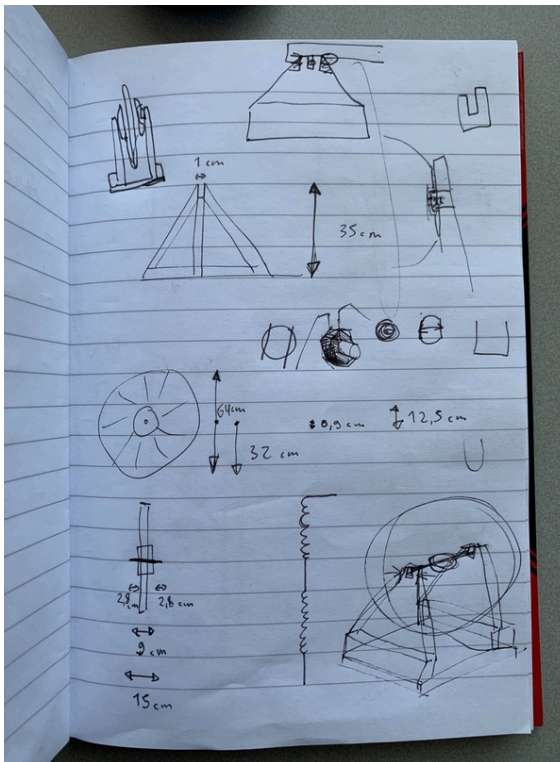 1 cm
35 cm
64cm
32 cm
0,9 cm
12,5 cm
2,8 cm
2,8 cm
9 cm
15 cm